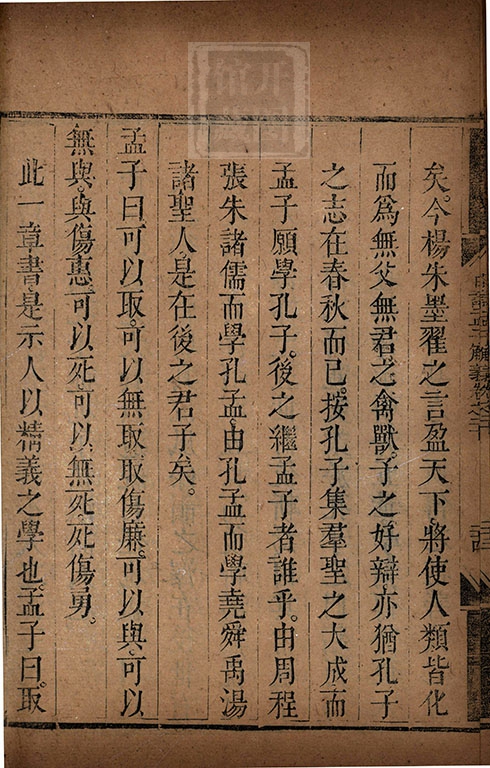 矣。今楊朱墨翟之言盈天下。將使人類皆化
而爲無父無君之禽獸。子之好辯。亦猶孔子
之志在春秋而已。按孔子集羣聖之大成。而
孟子願學孔子。後之繼孟子者誰乎。由周程
張朱諸儒而學孔孟。由孔孟而學堯舜禹湯
諸聖人。是在後之君子矣。
孟子曰可以取。可以無取。取傷廉。可以與。可以
無與。與傷惠。可以死。可以無死。死傷勇。
此一章書。是示人以精義之學也。孟子曰。取